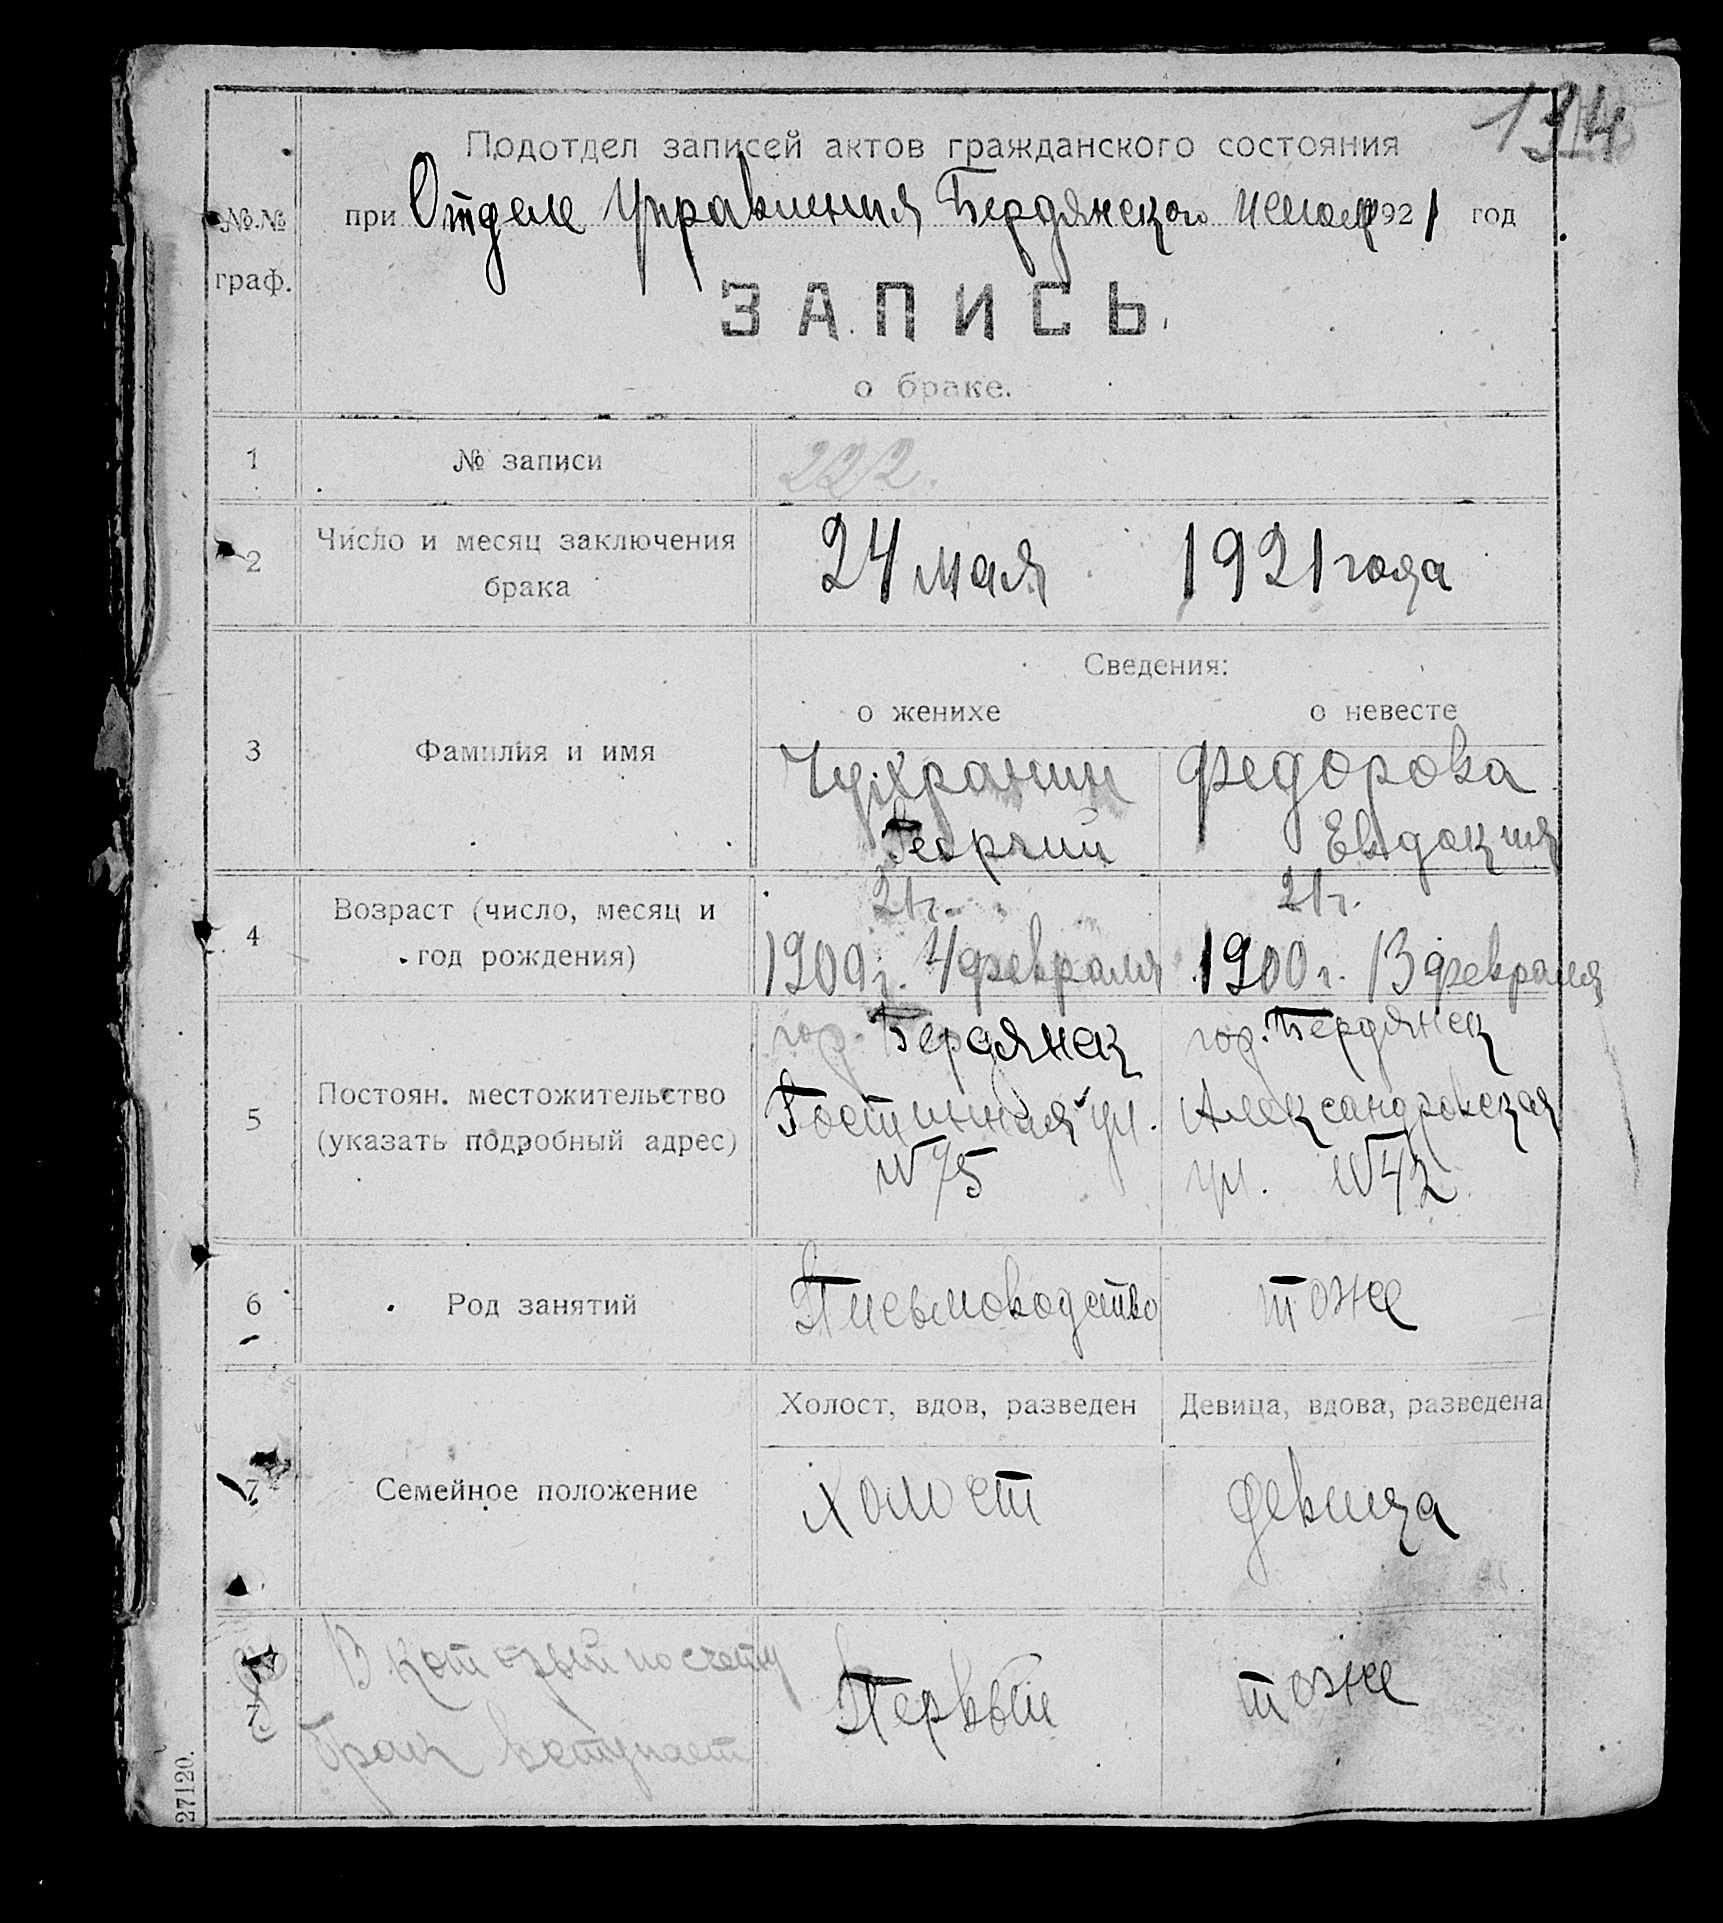 134
Подотдел записей актов гражданского состояния
№.№ при Отделе Управления Бердянского 1921 год
граф.
ЗАПИСЬ
о браке.
1 № записи 222.
2 Число и месяц заключения брака 24 мая 1921 года
Сведения:
о женихе о невесте
3 Фамилия и имя
Чухранин Федорова
Георгий Евдокия
4 Возраст (число, месяц и год рождения)
21 г. 21 г.
1900 г. 4 февраля 1900 г. 13 февраля
5 Постоян. местожительство (указать подробный адрес)
гор. Бердянск гор. Бердянск
Гостинная ул. Александровская
№ 75 ул. № 42
6 Род занятий Письмоводство тоже
Холост, вдов, разведен Девица, вдова, разведена
7 Семейное положение холост девица
В который по счету Первый тоже
брак вступает
27120.